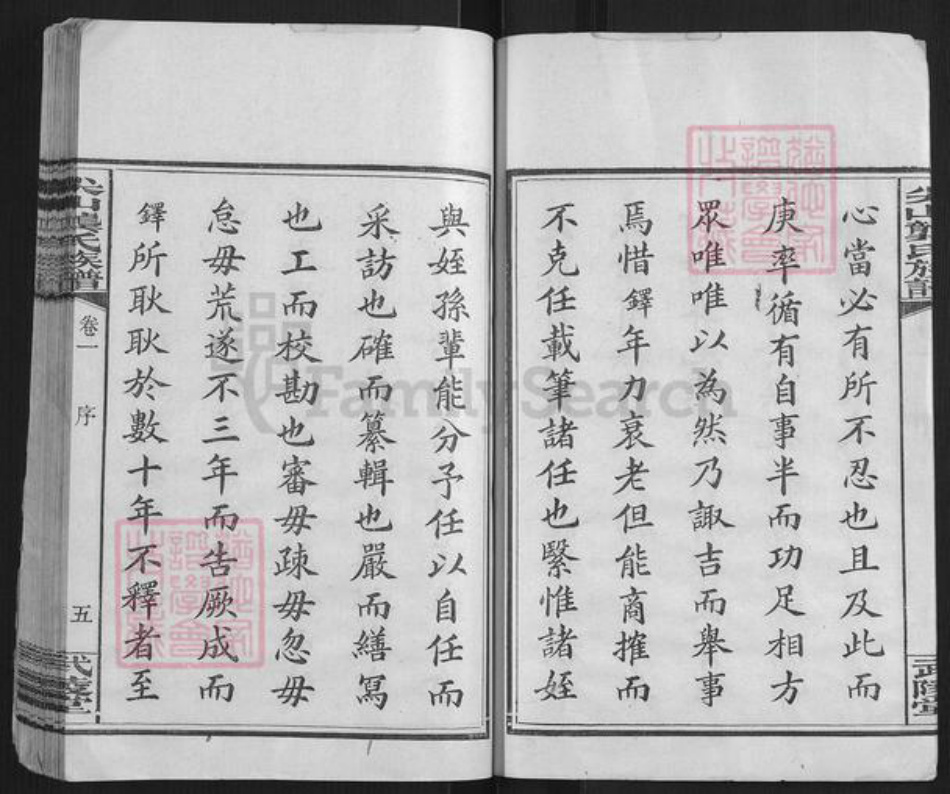 心當必有所不忍也且及此而
庚率循有自事半而功足相方
眾唯唯以為然乃諏吉而舉事
焉惜鐸年力衰老但能商搉而
不克任載筆諸任也緊惟諸姪
與姪孫輩能分予任以自任而
采訪也確而纂輯也嚴而繕寫
也工而校勘也審毋疎毋忽毋
怠毋荒遂不三年而告厥成而
鐸所耿耿於數十年不釋者至
卷一
序
五
武陵堂
FamilySearch